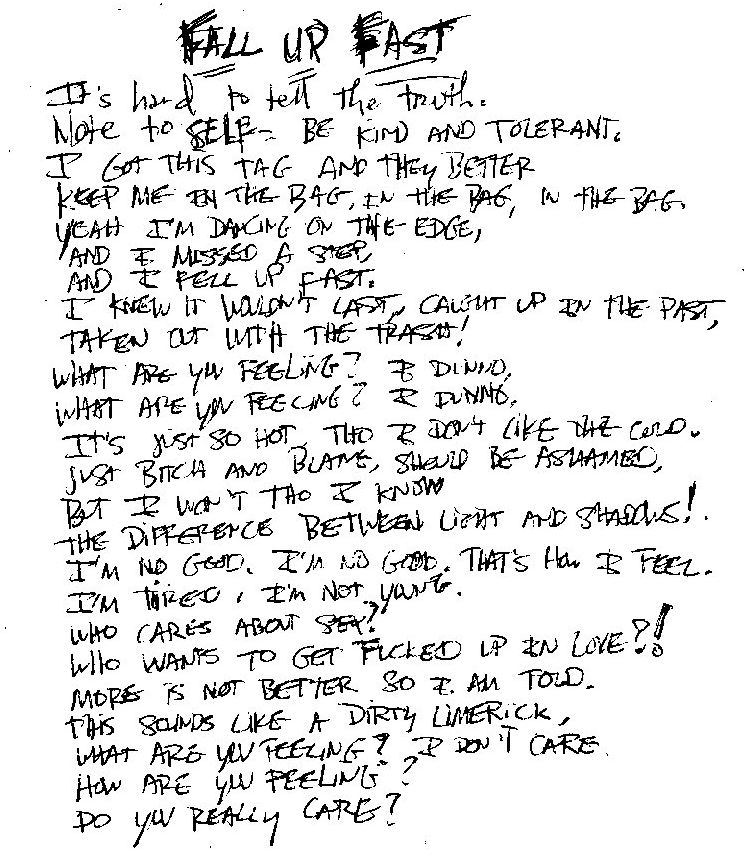 FALL UP FAST
It's hard to tell the truth.
Note to SELF- BE KIND AND TOLERANT.
I GOT THIS TAG AND THEY BETTER
KEEP ME IN THE BAG, IN THE BAG, IN THE BAG.
YEAH I'M DANCING ON THE EDGE,
AND I MISSED A STEP,
AND I FELL UP FAST.
I KNEW IT WOULDN'T LAST, CAUGHT UP IN THE PAST,
TAKEN OUT WITH THE TRASH!
WHAT ARE YOU FEELING? I DUNNO,
WHAT ARE YOU FEELING? I DUNNO,
IT'S JUST SO HOT, THO I DON'T LIKE THE COLD.
JUST BITCH AND BLAME, SHOULD BE ASHAMED,
BUT I WON'T THO I KNOW
THE DIFFERENCE BETWEEN LIGHT AND SHADOWS!
I'M NO GOOD. I'M NO GOOD. THAT'S HOW I FEEL.
I'M TIRED, I'M NOT YOUNG.
WHO CARES ABOUT SEX?
WHO WANTS TO GET FUCKED UP IN LOVE?!
MORE IS NOT BETTER SO I AM TOLD.
THIS SOUNDS LIKE A DIRTY LIMERICK,
WHAT ARE YOU FEELING? I DON'T CARE.
HOW ARE YOU FEELING?
DO YOU REALLY CARE?